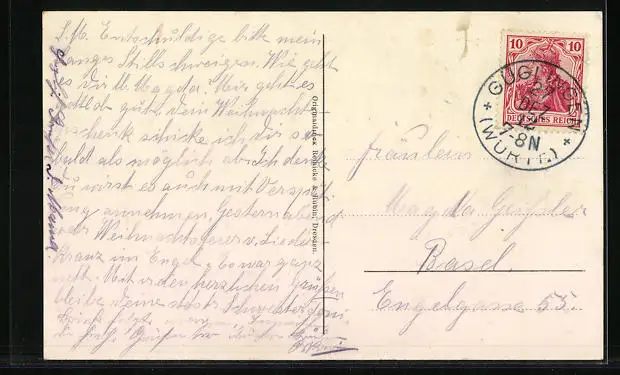 L. M. Entschuldige bitte mein
langes Stillschweigen. Wie geht
es dir M. Magda? Mir geht es
gottlob gut. Dein Weihnachts
geschenk schicke ich dir so
bald als möglich ab. Ich denke
du wirst es auch mit Verspät
ung annehmen. Gestern abend
war Weihnachtsfeier v. Lieder
Kranz im Engel. Es war ganz
nett. Mit den herzlichen Grüßen
bleibe deine
Originaldruck Dresden.
10 10
DEUTSCHES REICH
GÜGLINGEN
25
DEZ
12
7-8N
(WÜRTT.)
Fräulein
Magda Geissler
Basel
Engelgasse 55.